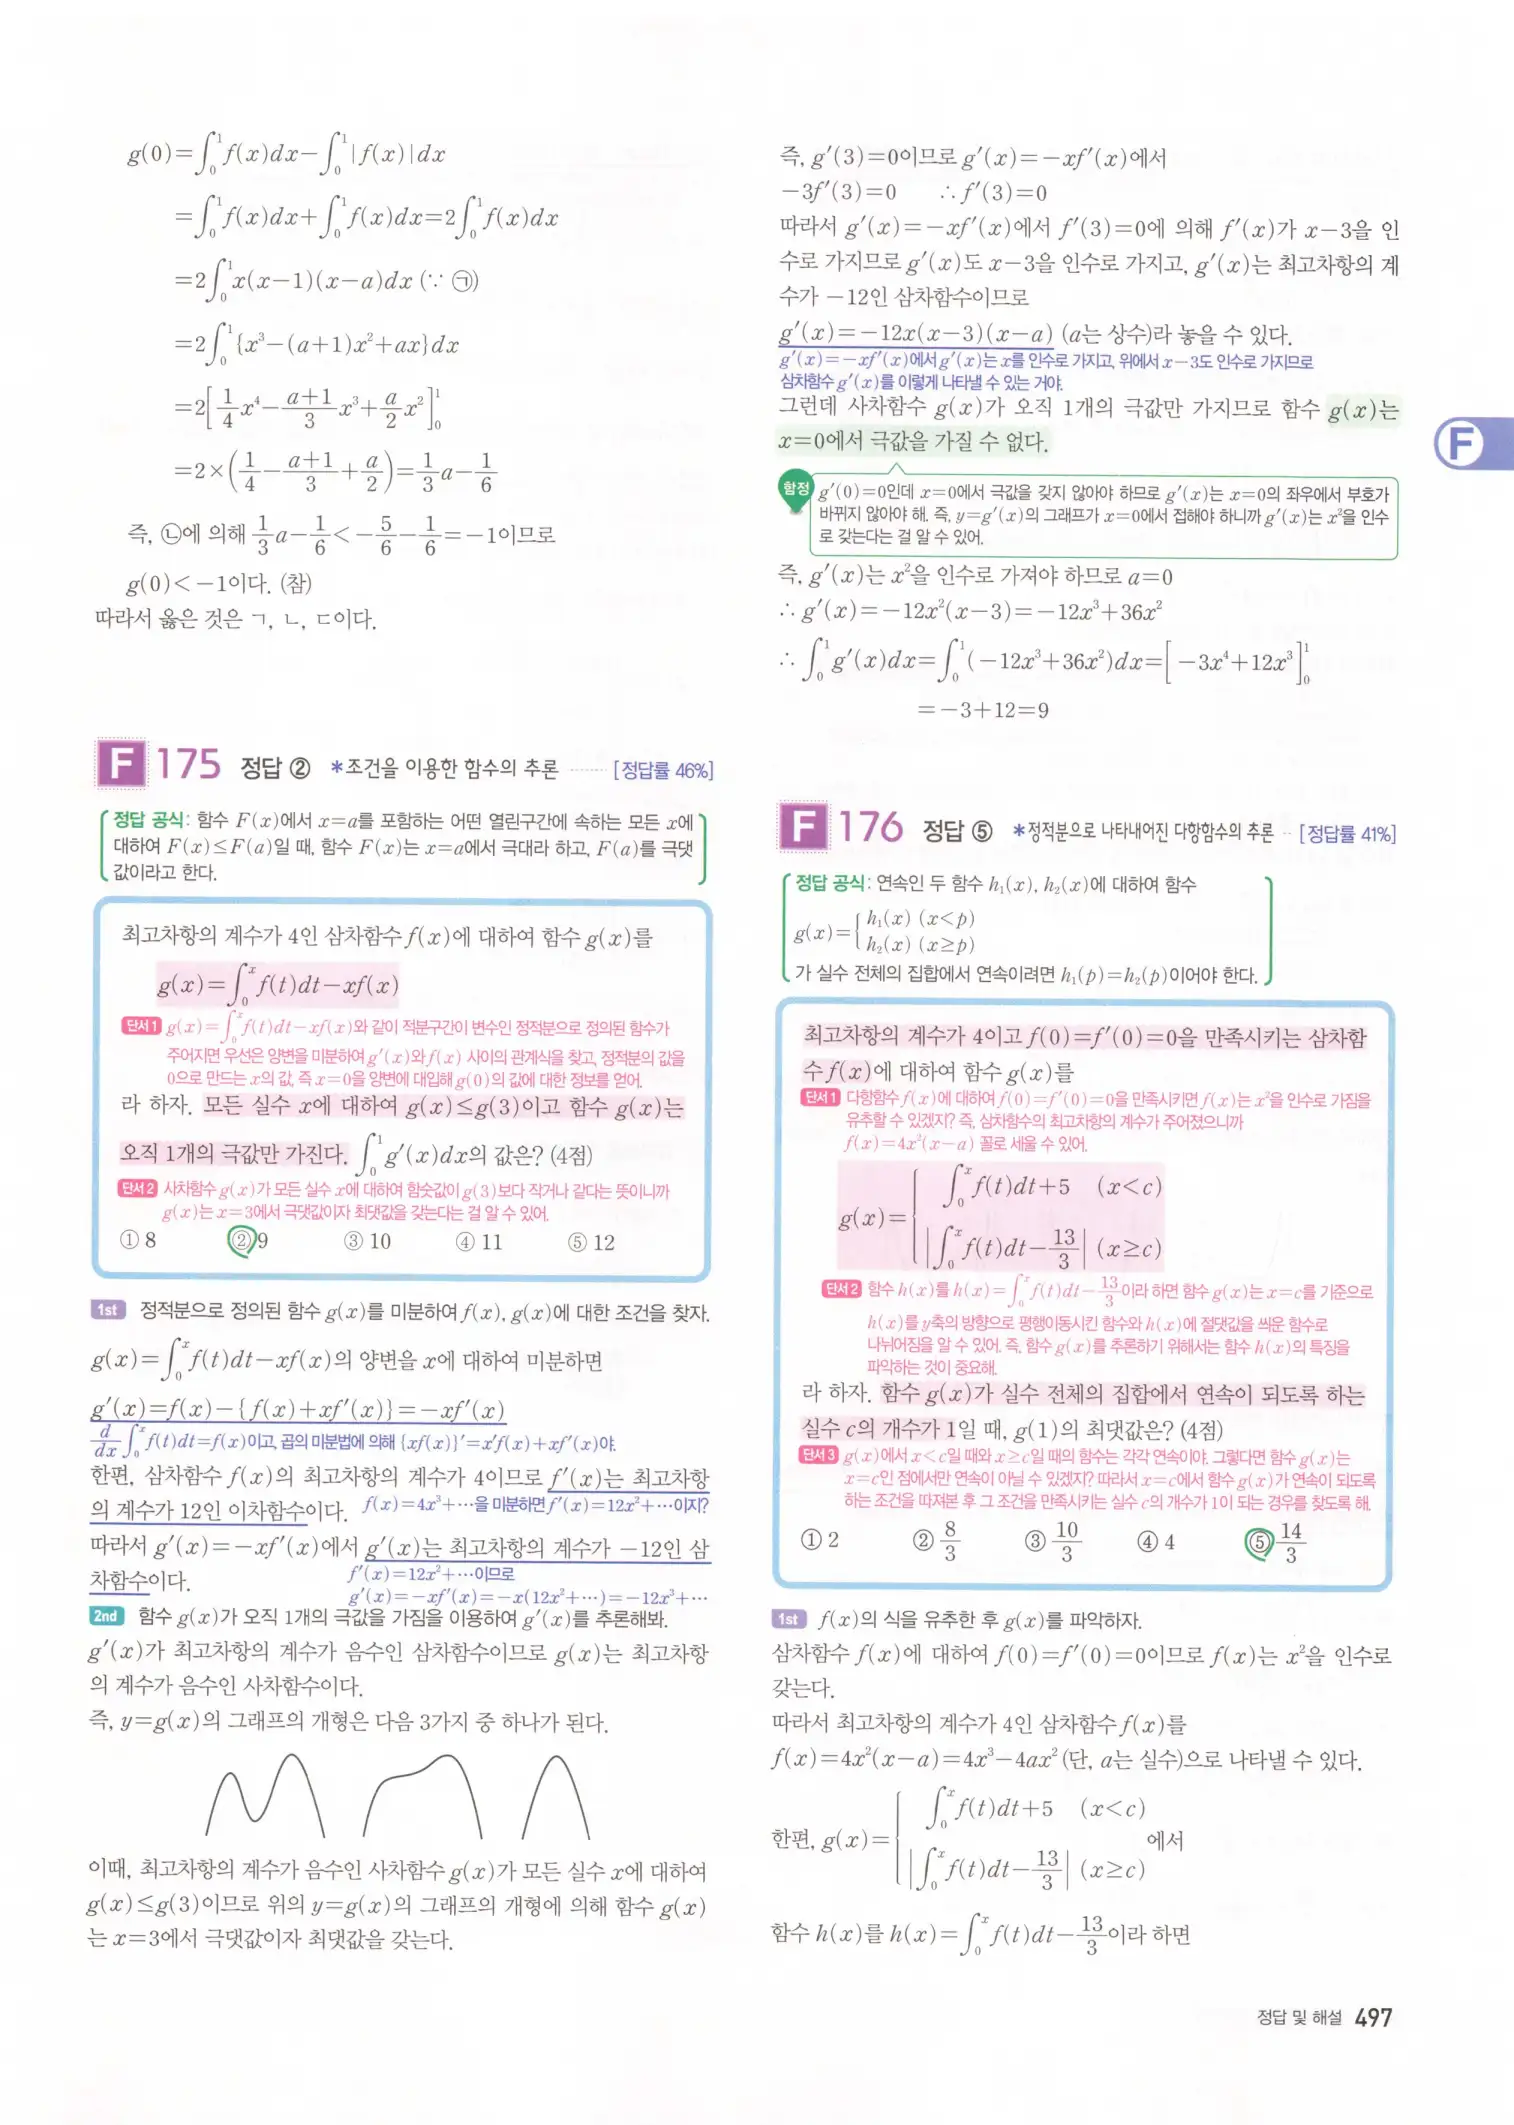 g(0)=∫₀¹f(x)dx−∫₀¹|f(x)|dx
=∫₀¹f(x)dx+∫₀¹f(x)dx=2∫₀¹f(x)dx
=2∫₀¹x(x−1)(x−a)dx (∵ ㉠)
=2∫₀¹{x³−(a+1)x²+ax}dx
=2[1/4 x⁴−(a+1)/3 x³+a/2 x²]₀¹
=2×(1/4−(a+1)/3+a/2)=1/3 a−1/6
즉, ㉡에 의해 1/3 a−1/6<−5/6−1/6=−1이므로
g(0)<−1이다. (참)
따라서 옳은 것은 ㄱ, ㄴ, ㄷ이다.
F 175 정답 ② *조건을 이용한 함수의 추론 ······ [정답률 46%]
정답 공식: 함수 F(x)에서 x=a를 포함하는 어떤 열린구간에 속하는 모든 x에
대하여 F(x)≤F(a)일 때, 함수 F(x)는 x=a에서 극대라 하고, F(a)를 극댓
값이라고 한다.
최고차항의 계수가 4인 삼차함수 f(x)에 대하여 함수 g(x)를
g(x)=∫₀ˣf(t)dt−xf(x)
단서1 g(x)=∫₀ˣf(t)dt−xf(x)와 같이 적분구간이 변수인 정적분으로 정의된 함수가
주어지면 우선은 양변을 미분하여 g′(x)와 f(x) 사이의 관계식을 찾고, 정적분의 값을
0으로 만드는 x의 값, 즉 x=0을 양변에 대입해 g(0)의 값에 대한 정보를 얻어.
라 하자. 모든 실수 x에 대하여 g(x)≤g(3)이고 함수 g(x)는
오직 1개의 극값만 가진다. ∫₀¹g′(x)dx의 값은? (4점)
단서2 사차함수 g(x)가 모든 실수 x에 대하여 함숫값이 g(3)보다 작거나 같다는 뜻이니까
g(x)는 x=3에서 극댓값이자 최댓값을 갖는다는 걸 알 수 있어.
① 8 ② 9 ③ 10 ④ 11 ⑤ 12
1st 정적분으로 정의된 함수 g(x)를 미분하여 f(x), g(x)에 대한 조건을 찾자.
g(x)=∫₀ˣf(t)dt−xf(x)의 양변을 x에 대하여 미분하면
g′(x)=f(x)−{f(x)+xf′(x)}=−xf′(x)
d/dx ∫₀ˣf(t)dt=f(x)이고, 곱의 미분법에 의해 {xf(x)}′=x′f(x)+xf′(x)야.
한편, 삼차함수 f(x)의 최고차항의 계수가 4이므로 f′(x)는 최고차항
의 계수가 12인 이차함수이다. f(x)=4x³+⋯을 미분하면 f′(x)=12x²+⋯이지?
따라서 g′(x)=−xf′(x)에서 g′(x)는 최고차항의 계수가 −12인 삼
차함수이다. f′(x)=12x²+⋯이므로
g′(x)=−xf′(x)=−x(12x²+⋯)=−12x³+⋯
2nd 함수 g(x)가 오직 1개의 극값을 가짐을 이용하여 g′(x)를 추론해봐.
g′(x)가 최고차항의 계수가 음수인 삼차함수이므로 g(x)는 최고차항
의 계수가 음수인 사차함수이다.
즉, y=g(x)의 그래프의 개형은 다음 3가지 중 하나가 된다.
이때, 최고차항의 계수가 음수인 사차함수 g(x)가 모든 실수 x에 대하여
g(x)≤g(3)이므로 위의 y=g(x)의 그래프의 개형에 의해 함수 g(x)
는 x=3에서 극댓값이자 최댓값을 갖는다.
즉, g′(3)=0이므로 g′(x)=−xf′(x)에서
−3f′(3)=0 ∴ f′(3)=0
따라서 g′(x)=−xf′(x)에서 f′(3)=0에 의해 f′(x)가 x−3을 인
수로 가지므로 g′(x)도 x−3을 인수로 가지고, g′(x)는 최고차항의 계
수가 −12인 삼차함수이므로
g′(x)=−12x(x−3)(x−a) (a는 상수)라 놓을 수 있다.
g′(x)=−xf′(x)에서 g′(x)는 x를 인수로 가지고, 위에서 x−3도 인수로 가지므로
삼차함수 g′(x)를 이렇게 나타낼 수 있는 거야.
그런데 사차함수 g(x)가 오직 1개의 극값만 가지므로 함수 g(x)는
x=0에서 극값을 가질 수 없다.
함정 g′(0)=0인데 x=0에서 극값을 갖지 않아야 하므로 g′(x)는 x=0의 좌우에서 부호가
바뀌지 않아야 해. 즉, y=g′(x)의 그래프가 x=0에서 접해야 하니까 g′(x)는 x²을 인수
로 갖는다는 걸 알 수 있어.
즉, g′(x)는 x²을 인수로 가져야 하므로 a=0
∴ g′(x)=−12x²(x−3)=−12x³+36x²
∴ ∫₀¹g′(x)dx=∫₀¹(−12x³+36x²)dx=[−3x⁴+12x³]₀¹
=−3+12=9
F 176 정답 ⑤ *정적분으로 나타내어진 다항함수의 추론 ·· [정답률 41%]
정답 공식: 연속인 두 함수 h₁(x), h₂(x)에 대하여 함수
g(x)={ h₁(x) (x<p)
h₂(x) (x≥p)
가 실수 전체의 집합에서 연속이려면 h₁(p)=h₂(p)이어야 한다.
최고차항의 계수가 4이고 f(0)=f′(0)=0을 만족시키는 삼차함
수 f(x)에 대하여 함수 g(x)를
단서1 다항함수 f(x)에 대하여 f(0)=f′(0)=0을 만족시키면 f(x)는 x²을 인수로 가짐을
유추할 수 있겠지? 즉, 삼차함수의 최고차항의 계수가 주어졌으니까
f(x)=4x²(x−a) 꼴로 세울 수 있어.
g(x)={ ∫₀ˣf(t)dt+5 (x<c)
|∫₀ˣf(t)dt−13/3| (x≥c)
단서2 함수 h(x)를 h(x)=∫₀ˣf(t)dt−13/3이라 하면 함수 g(x)는 x=c를 기준으로
h(x)를 y축의 방향으로 평행이동시킨 함수와 h(x)에 절댓값을 씌운 함수로
나뉘어짐을 알 수 있어. 즉, 함수 g(x)를 추론하기 위해서는 함수 h(x)의 특징을
파악하는 것이 중요해.
라 하자. 함수 g(x)가 실수 전체의 집합에서 연속이 되도록 하는
실수 c의 개수가 1일 때, g(1)의 최댓값은? (4점)
단서3 g(x)에서 x<c일 때와 x≥c일 때의 함수는 각각 연속이야. 그렇다면 함수 g(x)는
x=c인 점에서만 연속이 아닐 수 있겠지? 따라서 x=c에서 함수 g(x)가 연속이 되도록
하는 조건을 따져본 후 그 조건을 만족시키는 실수 c의 개수가 1이 되는 경우를 찾도록 해.
① 2 ② 8/3 ③ 10/3 ④ 4 ⑤ 14/3
1st f(x)의 식을 유추한 후 g(x)를 파악하자.
삼차함수 f(x)에 대하여 f(0)=f′(0)=0이므로 f(x)는 x²을 인수로
갖는다.
따라서 최고차항의 계수가 4인 삼차함수 f(x)를
f(x)=4x²(x−a)=4x³−4ax² (단, a는 실수)으로 나타낼 수 있다.
한편, g(x)={ ∫₀ˣf(t)dt+5 (x<c)
|∫₀ˣf(t)dt−13/3| (x≥c) 에서
함수 h(x)를 h(x)=∫₀ˣf(t)dt−13/3이라 하면
F
정답 및 해설 497